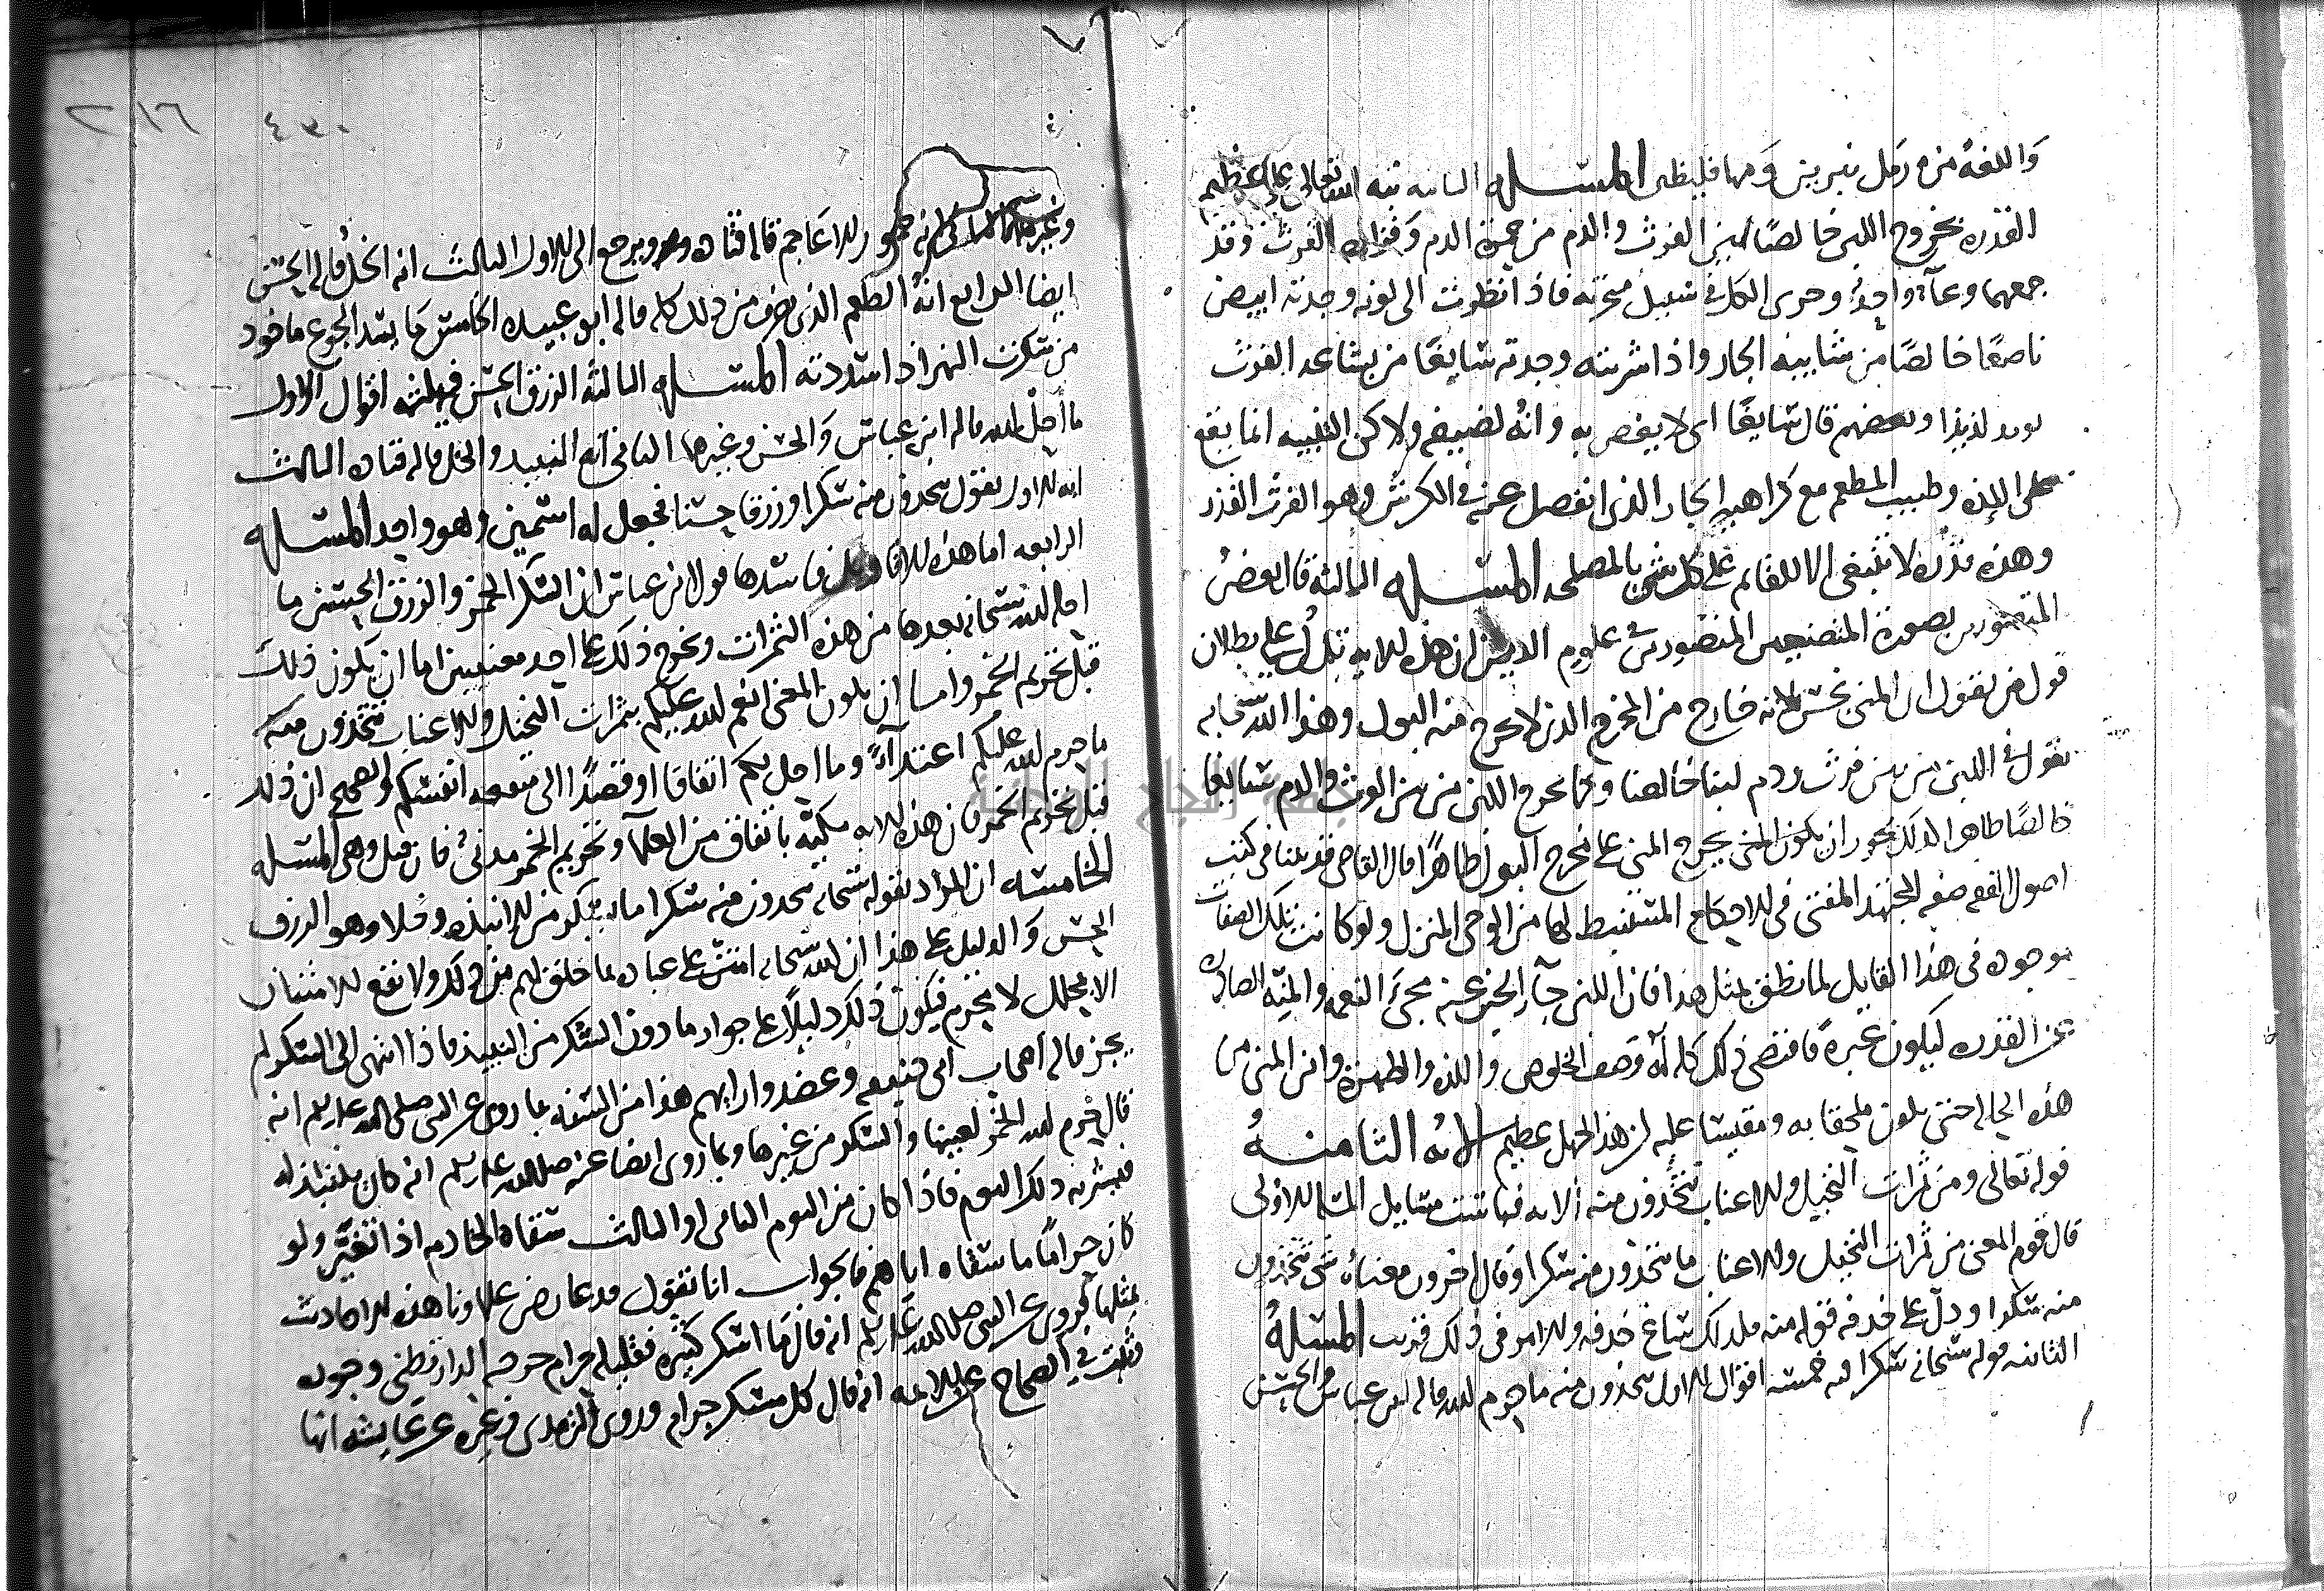 واللغة منزه رمل نبرين ومها فلينظر المسئله الثانيه نبه الله تعالى على عظيم
القدرة بخروج اللبن خالصا بين الفرث والدم من حمرة الدم وقذارة الفرث وقد
جمعهما وعآء واحد وجرى الكل في سبيل متحدة فاذا نظرت الى لونه وجدته ابيض
ناصعا خالصا من شايبة الجار واذا شربته وجدته سايغا من بشاعة الفرث
يريد لذيذا وبعضهم قال سايغا اي لا يغص به وانه لصفته ولاكن التنبيه انما يقع
على اللذة وطيب المطعم مع كراهية الجار الذي انفصل عنه في الكرش وهو الفرث القذر
وهذه قدرة لا تنبغي الا للقايم على كل شي بالمصلحه المسئله الثالثة قال بعض
المتصورين بصورة المصنفين المتصورين في علوم الدين ان هذه الايه تدل على بطلان
قول من يقول ان المني نجس لانه خارج من المخرج الذي يخرج منه البول وهذا الله سبحانه
يقول في اللبن من بين فرث ودم لبنا خالصا وكما يخرج اللبن من بين الفرث والدم سايغا
خالصا طاهرا كذلك يجوز ان يكون المني يخرج المني على مخرج البول طاهرا قال القاضي قد بينا في كتب
اصول الفقه صفه المجتهد المفتي في الاحكام المستنبط لها من الوحي المنزل ولو كانت تلك الصفات
موجوده في هذا القايل لما نطق بمثل هذا فان اللبن جآء الخبر عنه مجرى النعمه والمنه الصادره
عن القدره ليكون عبرة فاقتضى ذلك كله له وصف الخلوص واللذه والطهرة واين المني من
هذه الحاله حتى يكون ملحقا به ومقيسا عليه ان هذا لجهل عظيم الايه الثامنة
قوله تعالى ومن ثمرات النخيل والاعناب تتخذون منه الايه فيها ست مسايل المسئله الاولى
قال قوم المعنى من ثمرات النخيل والاعناب ما تتخذون منه سكرا وقال اخرون معناه شي تتخذون
منه سكرا ودل على حذفه قوله منه فلذلك ساغ حذفه والامر في ذلك قريب المسئلة
الثانيه قوله سبحانه سكرا فيه خمسه اقوال الاول تتخذون منه ما حرم الله قاله ابن عباس والحسن
وغيرهما الثاني انه خمور الاعاجم قاله قتاده ويرجع الى الاول الثالث انه الخل قاله الحسن
ايضا الرابع انه الطعم الذي يعرف من ذلك كله قاله ابو عبيده الخامس ما يسد الجوع ماخوذ
من سكرت النهر اذا سددته المسئله الثالثة الرزق الحسن فيه ثلثه اقوال الاول
ما احل الله قاله ابن عباس والحسن وغيرهما الثاني انه النبيذ والخل قاله قتاده الثالث
انه الاول يقول تتخذون منه سكرا ورزقا حسنا فجعل له اسمين وهو واحد المسئله
الرابعه اما هذه الاقاويل فاسدها قول ابن عباس ان السكر الخمر والرزق الحسن ما
احله الله سبحانه بعدها من هذه الثمرات وتخرج ذلك على احد معنيين اما ان يكون ذلك
قبل تحريم الخمر واما ان يكون المعنى انعم الله عليكم بثمرات النخيل والاعناب تتخذون منه
ما حرم الله عليكم اعتدآءً وما احل لكم اتفاقا او قصدًا الى منفعه انفسكم والصحيح ان ذلك
قبل تحريم الخمر فان هذه الايه مكية باتفاق من العلمآء وتحريم الخمر مدني فان قيل وهي المسئله
الخامسه ان المراد بقوله سبحانه تتخذون منه سكرا ما يسكر من الانبذه وخلا وهو الرزق
الحسن والدليل على هذا ان الله سبحانه امتن على عباده بما خلق لهم من ذلك ولا تقع الامتنان
الا بمحلل لا بمحرم فيكون ذلك دليلًا على جواز ما دون السكر من النبيذ فاذا انتهى الى السكر لم
يجز قاله اصحاب ابي حنيفه وعضدوا رايهم هذا من السنه بما روي عن النبي صلى الله عليه وسلم انه
قال حرم الله الخمر لعينها والسكر من غيرها وبما روي ايضا عنه صلى الله عليه وسلم انه كان ينتبذ له
فيشربه ذلك اليوم فاذا كان من اليوم الثاني او الثالث سقاه الخادم اذا تغير ولو
كان حرامًا ما سقاه اياهم فالجواب انا نقول قد عارض علماونا هذه الاحاديث
بمثلها فروي عن النبي صلى الله عليه وسلم انه قال ما اسكر كثيره فقليله حرام خرجه الدارقطني وجوده
وثبت في الصحاح عن الايمه انه قال كل مسكر حرام وروى الترمذي وغيره عن عايشه انها